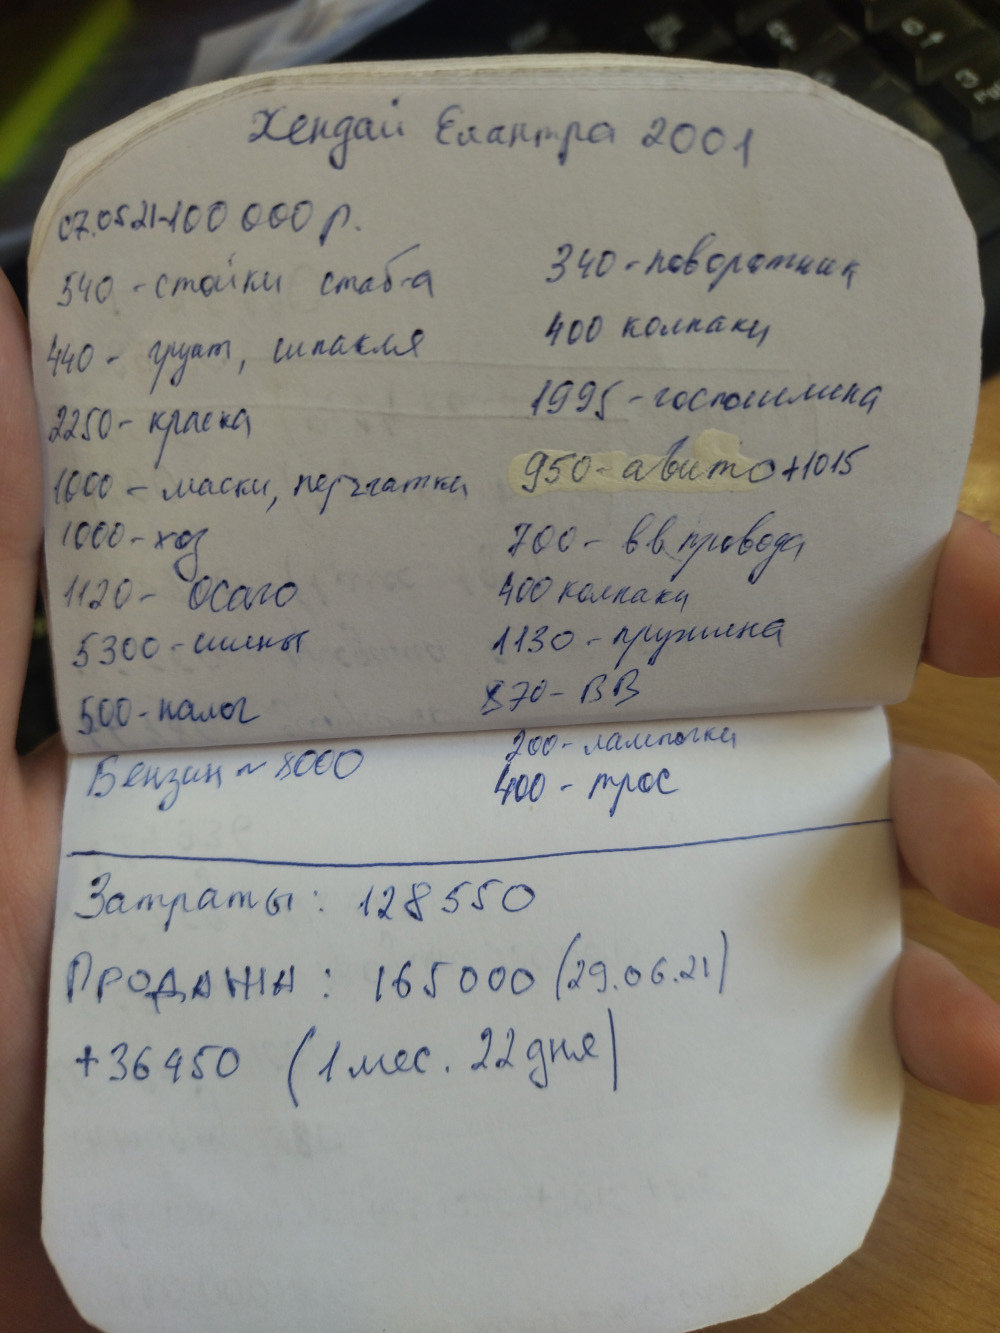 Хендай Елантра 2001
07.05.21-100 000 р.
540 - стойки стаб-а
440 - грунт, шпакля
2250 - краска
1000 - маски, перчатки
1000 - хоз
1120 - осаго
5300 - шины
500 - налог
Бензин ~ 8000
340 - поворотник
400 колпаки
1995 - госпошлина
950 - авито +1015
700 - вв провода
400 колпаки
1130 - пружина
870 - ВВ
200 - лампочки
400 - трос
Затраты: 128550
ПРОДАЖА: 165000 (29.06.21)
+36450 (1 мес. 22 дня)